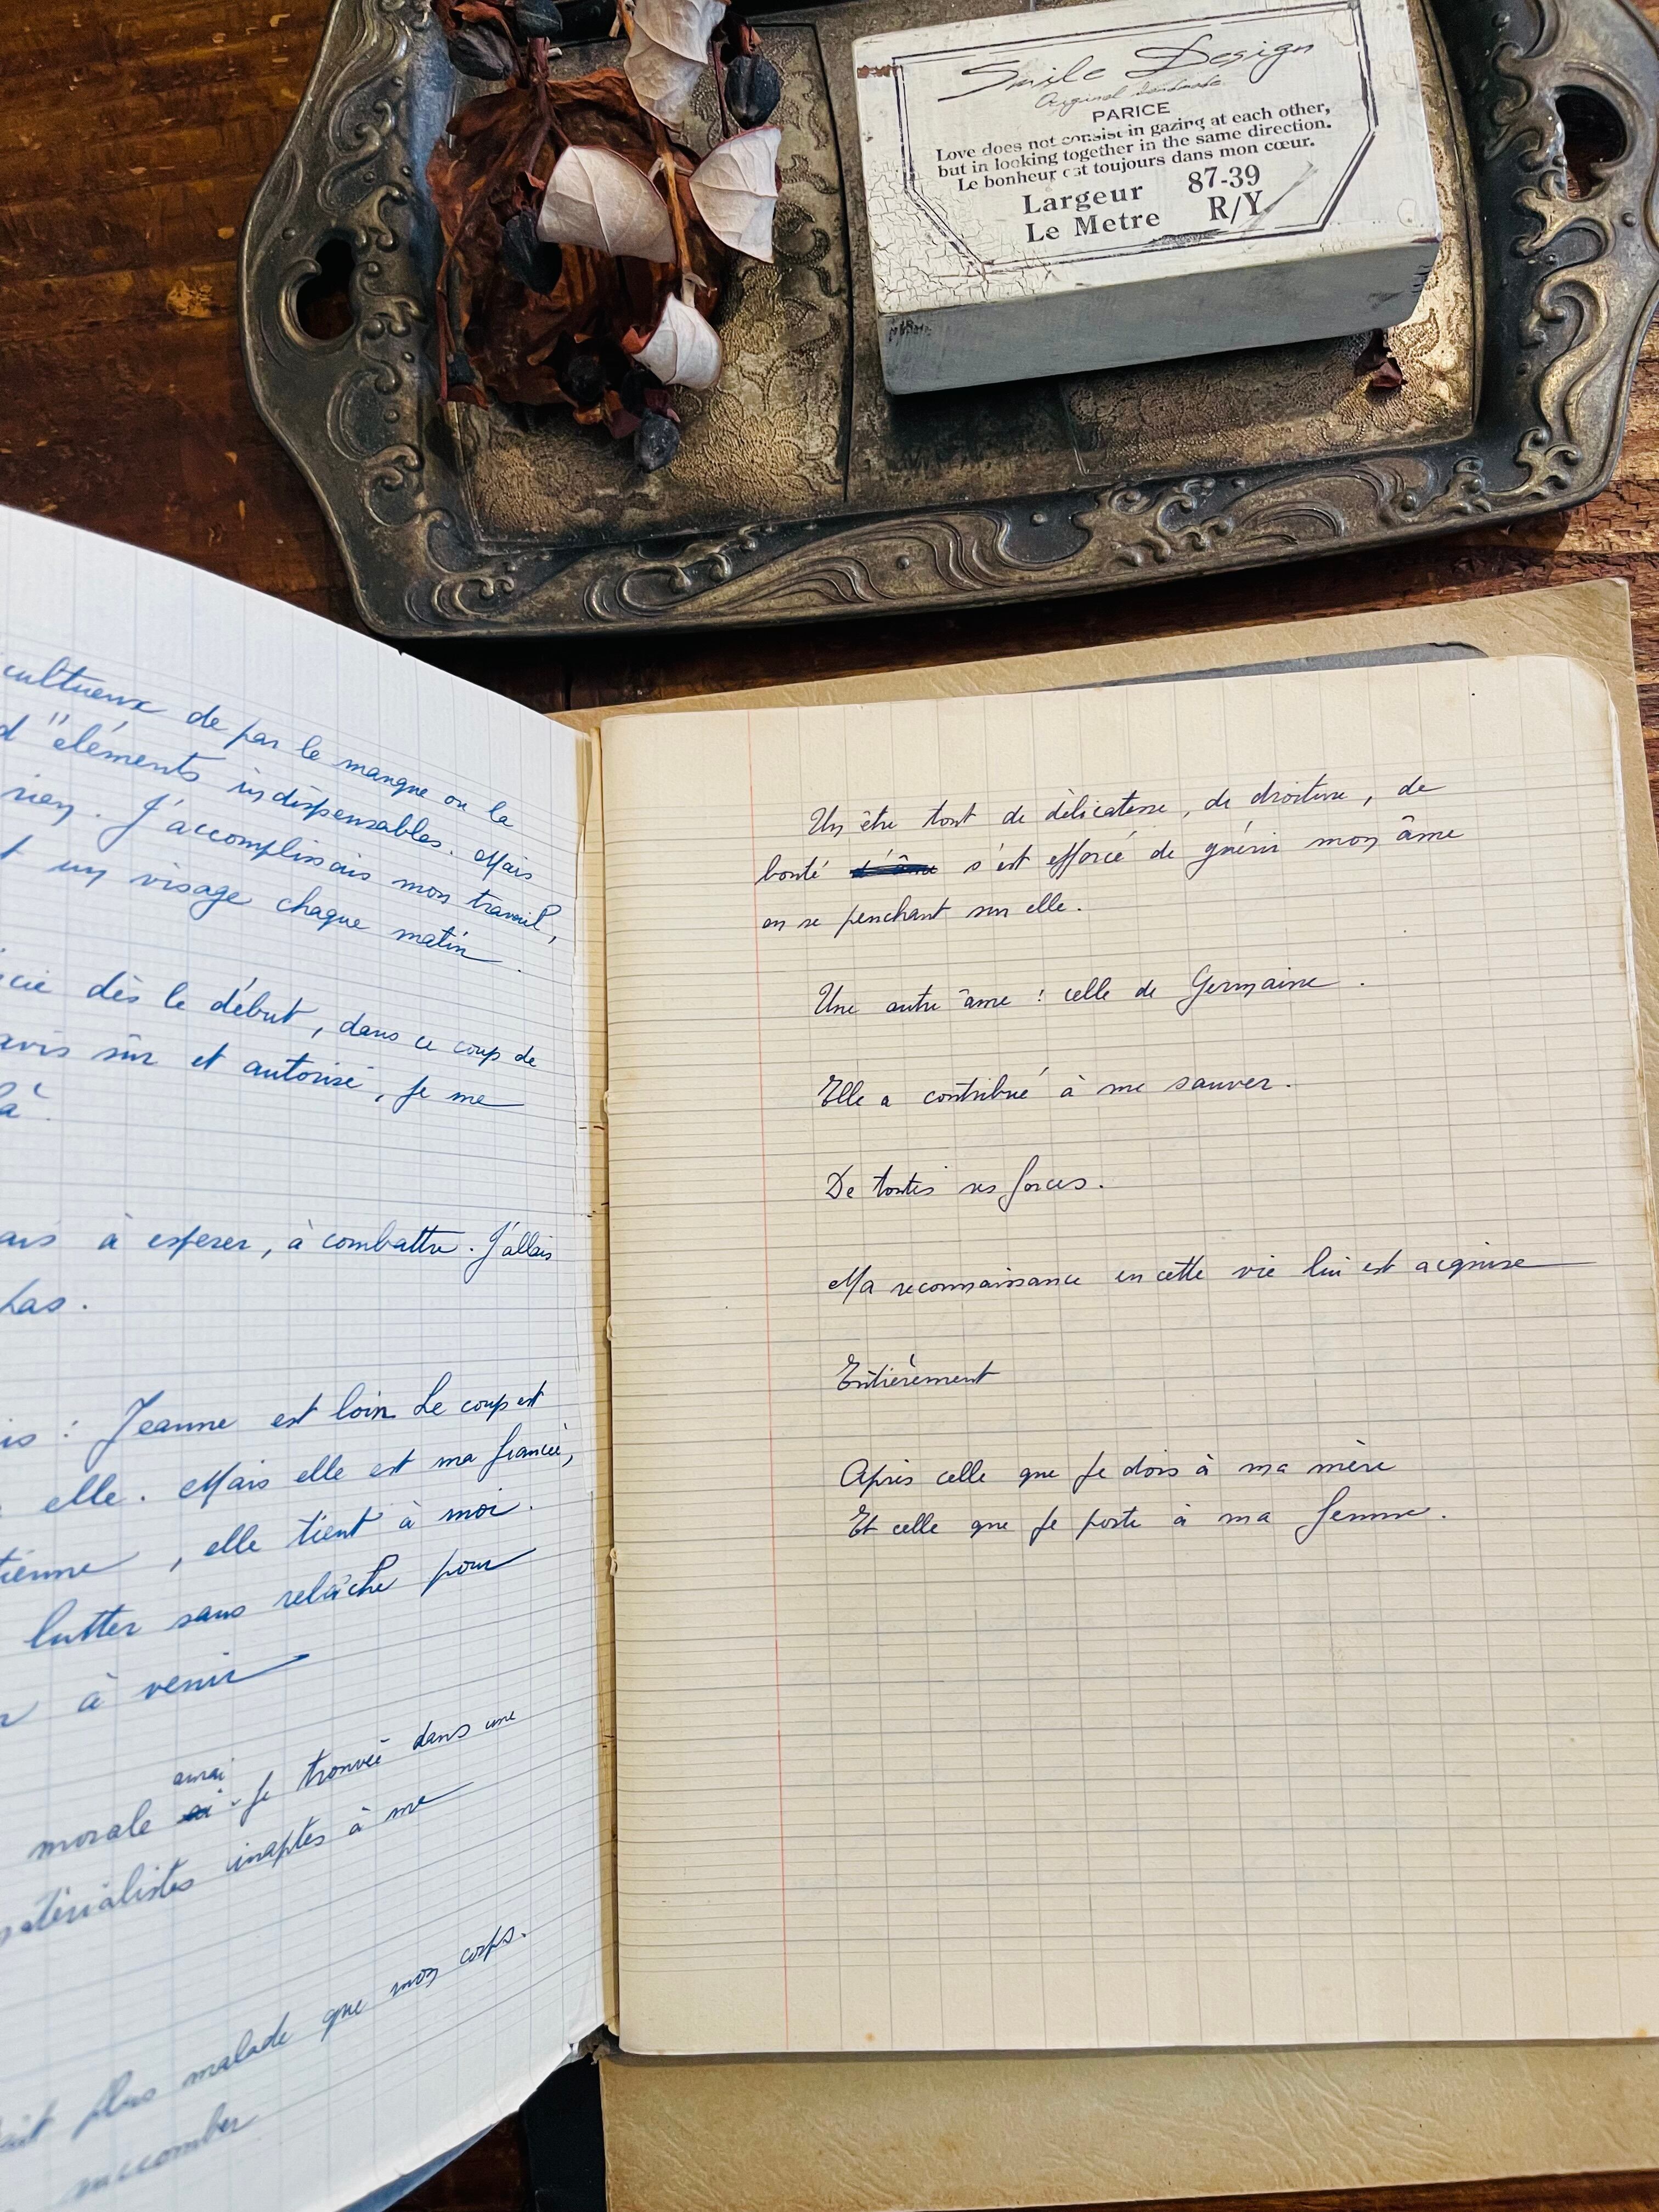 Smile Design
Original handmade
PARICE
Love does not consist in gazing at each other,
but in looking together in the same direction.
Le bonheur est toujours dans mon cœur.
Largeur 87-39
Le Metre R/Y
cultueux de par le manque ou la
d'"éléments indispensables. Mais
rien. J'accomplissais mon travail,
t un visage chaque matin.
cié dès le début, dans ce coup de
avis sûr et autorisé, je me
là.
ais à espérer, à combattre. J'allais
pas.
is : Jeanne est loin Le coup est
elle. Mais elle est ma fiancée,
tienne, elle tient à moi.
lutter sans relâche pour
r à venir
aurai
morale ai-je trouvée dans une
matérialistes inaptes à me
ait plus malade que mon corps.
succomber
Un être tout de délicatesse, de droiture, de
bonté d'âme s'est efforcé de guérir mon âme
en se penchant sur elle.
Une autre âme : celle de Germaine.
Elle a contribué à me sauver.
De toutes ses forces.
Ma reconnaissance en cette vie lui est acquise
Entièrement
Après celle que je dois à ma mère
Et celle que je porte à ma femme.